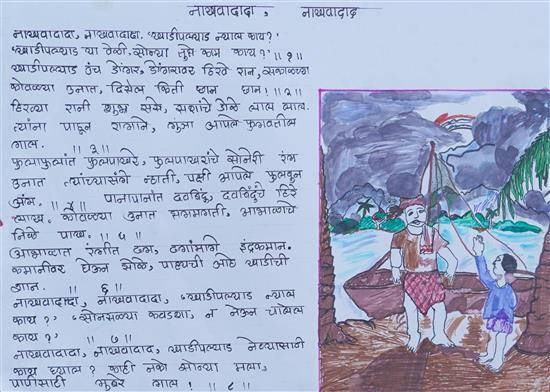 नाखवादादा, नाखवादादा
नाखवादादा, नाखवादादा, 'खाडीपल्याड न्याल काय?'
'खाडीपल्याड या वेळी, सोन्या तुझे काम काय?' ॥ १ ॥
खाडीपल्याड उंच डोंगर, डोंगरावर हिरवे रान, सकाळच्या
कोवळ्या उनात, दिसेल किती छान छान! ॥ २ ॥
हिरव्या रानी शुभ्र ससे, सशांचे डोळे लाल लाल.
त्यांना पाहून रागाने, गुंजा आपले फुगवतील
गाल. ॥ ३ ॥
फुलाफुलांत फुलपाखरे, फुलपाखरांचे सोनेरी रंग
उनात त्यांच्यासंगे न्हाती, पक्षी आपले फुलवून
अंग. ॥ ४ ॥ पानापानांत दवबिंदू, दवबिंदूंचे हिरे
लाख. कोवळ्या उनात झगमगती, आभाळाचे
निळे पाख. ॥ ५ ॥
आभाळात रंगीत ढग, ढगांमागे इंद्रकमान.
कमानीवर घेऊन झोके, पाहायची आहे खाडीची
शान. ॥ ६ ॥
नाखवादादा, नाखवादादा, 'खाडीपल्याड न्याल
काय?' 'सोनसळ्या कवड्या, न नेऊन चालेल
काय?' ॥ ७ ॥
नाखवादादा, नाखवादादा, खाडीपल्याड नेण्यासाठी
काय घ्याल? काही नको सोन्या मला,
पापीसाठी गाल! ॥ ८ ॥